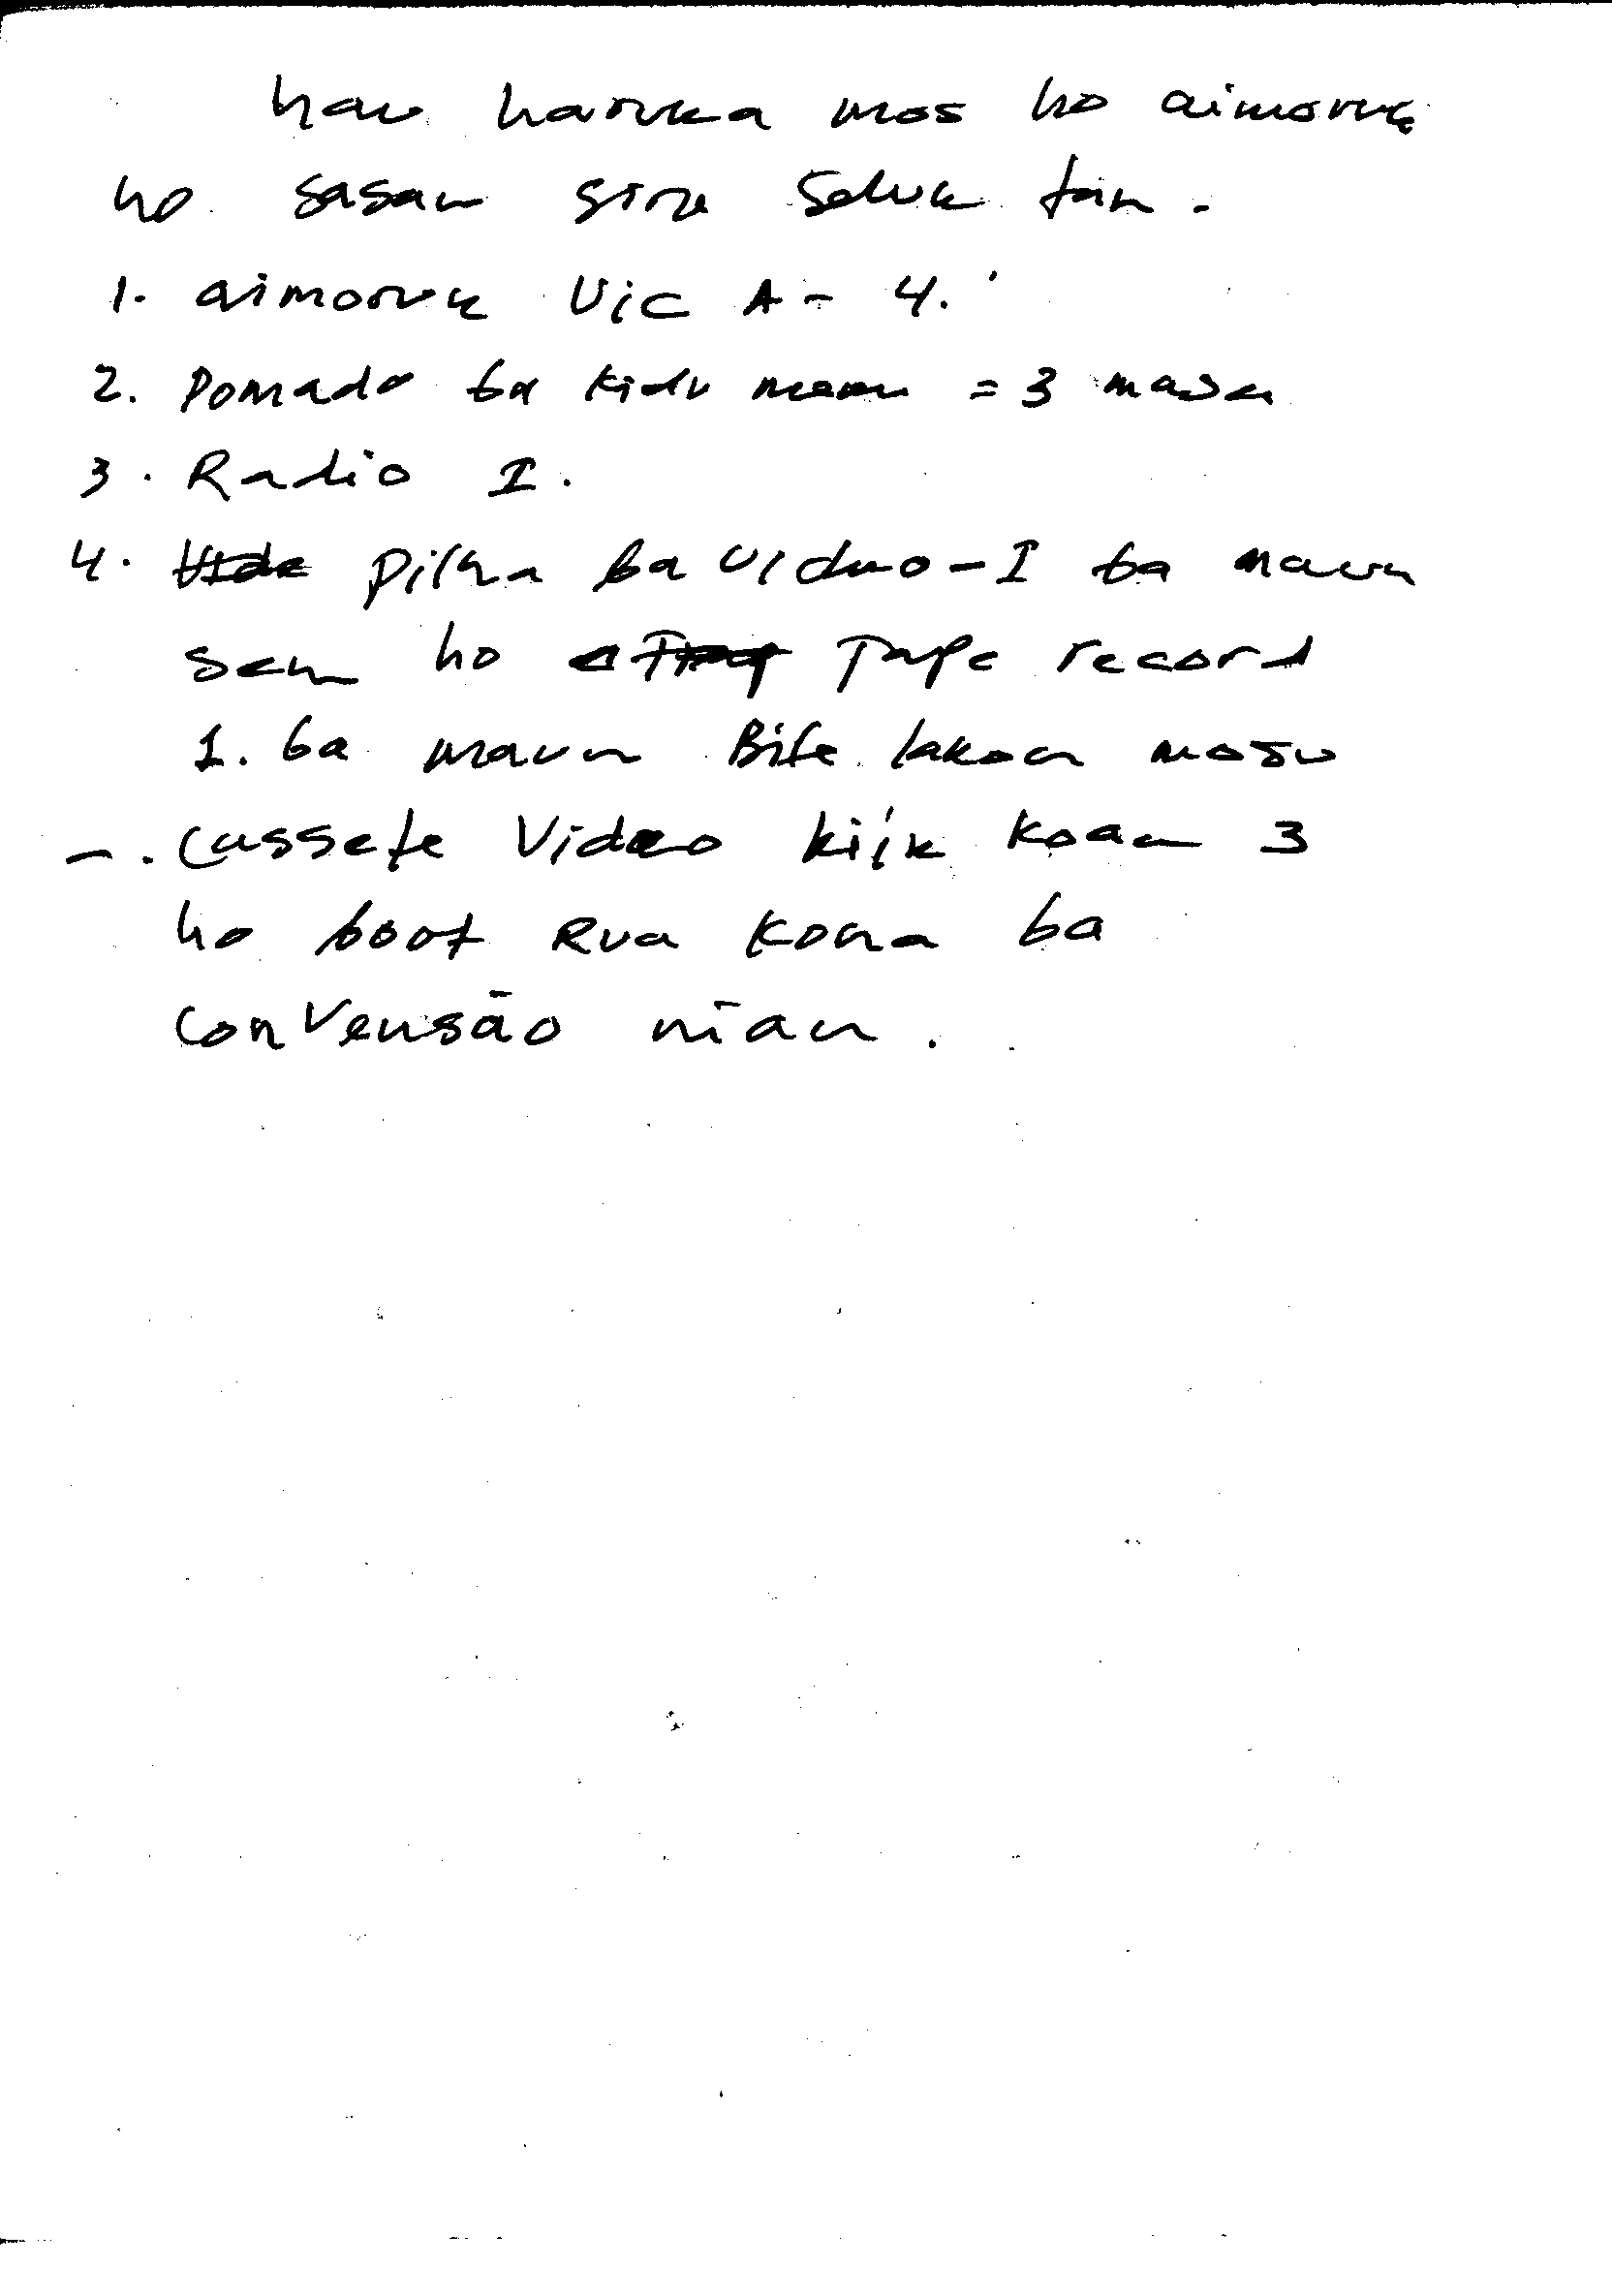 hau haruka mos ho aimoruk
ho sasan sira seluk tan.
1. aimoruk Vic A - 4.
2. Pomado ba kidu mean = 3 masu
3. Radio I.
4. pilha ba video - I ba maun
sen ho Tape record
1. ba maun Bite lakon mosu
-. Cassete Video kiik koan 3
ho boot Rua kona ba
Convensão nian.